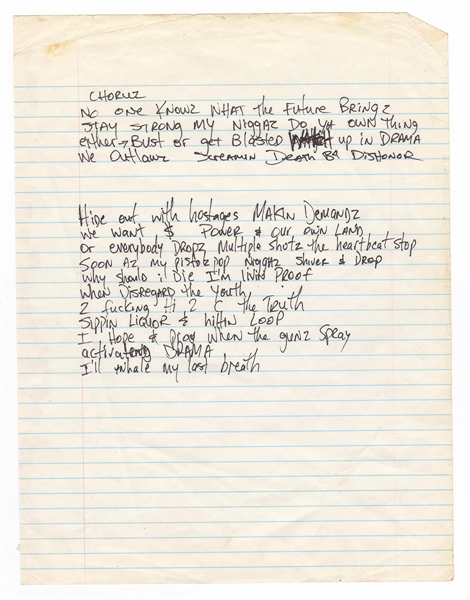 CHORUZ
NO ONE KNOWZ WHAT the Future BRINGZ
STAY STRONG MY NIGGAZ DO YA OWN THING
either → BUST or get BlasteD up in DRAMA
We Outlawz Screamin Death B4 DisHonor
Hide out with hostages MAKIN DemandZ
We want $ Power & our own LAND
or everybody DropZ Multiple Shotz the heartbeat stop
SOON AZ my pistolz pop NiggAZ Shiver & DROP
Why Should i Die I'm livin PROOF
When Disregard the Youth
2 fucking Hi 2 C the Truth
SIPPIN LIQUOR & hittin
I Hope & Pray when the gunz Spray
activating DRAMA
I'll inhale my last breath